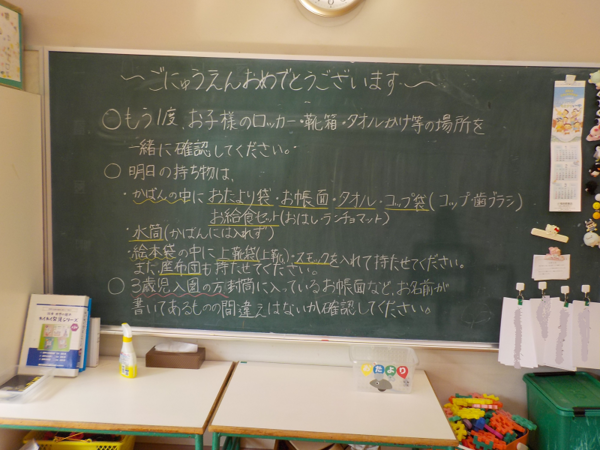 〜ごにゅうえんおめでとうございます〜
○もう1度、お子様のロッカー・靴箱・タオルかけ等の場所を
一緒に確認してください。
○ 明日の持ち物は、
・かばんの中におたより袋・お帳面・タオル・コップ袋(コップ・歯ブラシ)
お給食セット(おはし・ランチョマット)
・水筒(かばんには入れず)
・絵本袋の中に上靴袋(上靴)・スモックを入れて持たせてください。
また座布団も持たせてください。
○ 3歳児入園の方封筒に入っているお帳面など、お名前が
書いてあるものの間違えはないか確認してください。
おたより